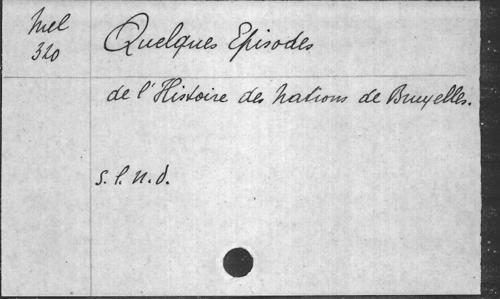 Mel
320
Quelques Episodes
de l'Histoire des Nations de Bruxelles.
s. l. n. d.